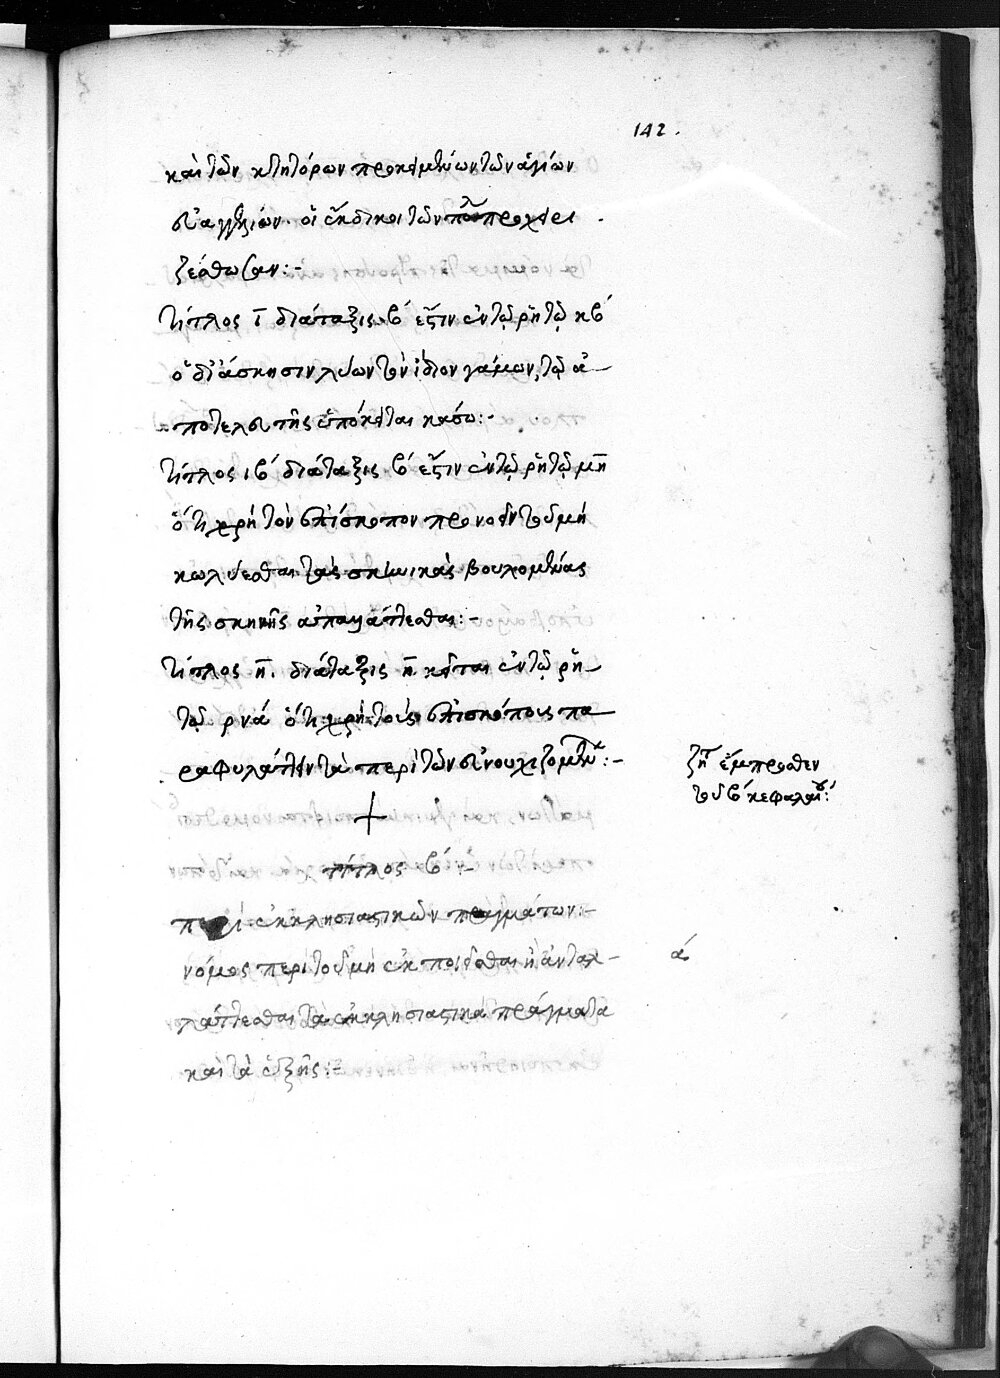 142.
καὶ τῶν κτητόρων προκειμένων τῶν ἁγίων
εὐαγγελίων. οἱ ἔκδικοι τῶν προχει
ζέσθωσαν:-
τίτλος ι διάταξις β΄ ἔστιν ἐν τῷ ῥητῷ κβ΄
ὁ δι' ἄσκησιν λύων τὸν ἴδιον γάμον, τῷ ἀ
ποτελευτῆς ὑπόκειται κάσω:-
τίτλος ιβ΄ διάταξις β΄ ἔστιν ἐν τῷ ῥητῷ μη
ὅτι χρὴ τὸν ἐπίσκοπον προνοεῖν τοῦ μὴ
κωλύεσθαι τὰς σκηνικὰς βουλομένας
τῆς σκηνῆς ἀπαλλάττεσθαι:-
τίτλος η. διάταξις η. κεῖται ἐν τῷ ῥη
τῷ ρνα΄ ὅτι χρὴ τοὺς ἐπισκόπους πα
ραφυλάττειν τὰ περὶ τῶν εὐνουχιζομένων:-
ζήτει ἔμπροσθεν
τοῦ β΄ κεφαλαίου:
τίτλος β΄
περὶ ἐκκλησιαστικῶν πραγμάτων:-
νόμος περὶ τοῦ μὴ ἐκποιεῖσθαι ἢ ἀνταλ-
α΄
λάττεσθαι τὰ ἐκκλησιαστικὰ πράγματα
καὶ τὰ ἑξῆς:-